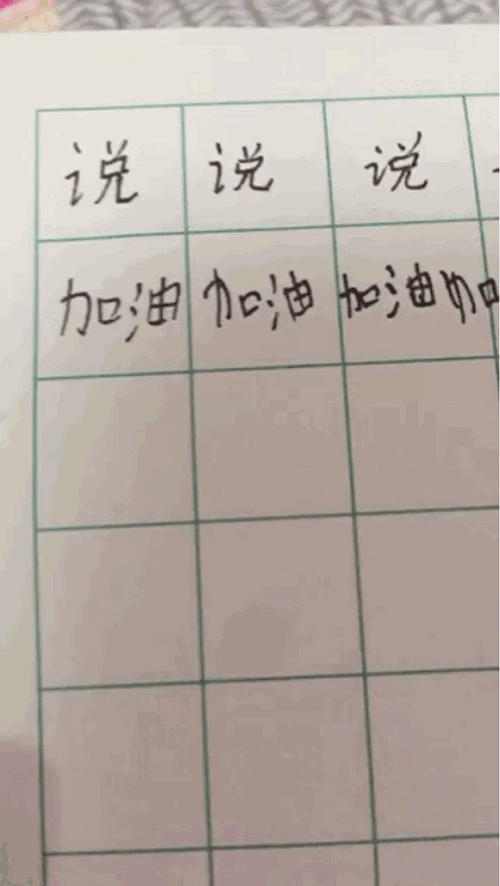 说 说 说
加油 加油 加油 加